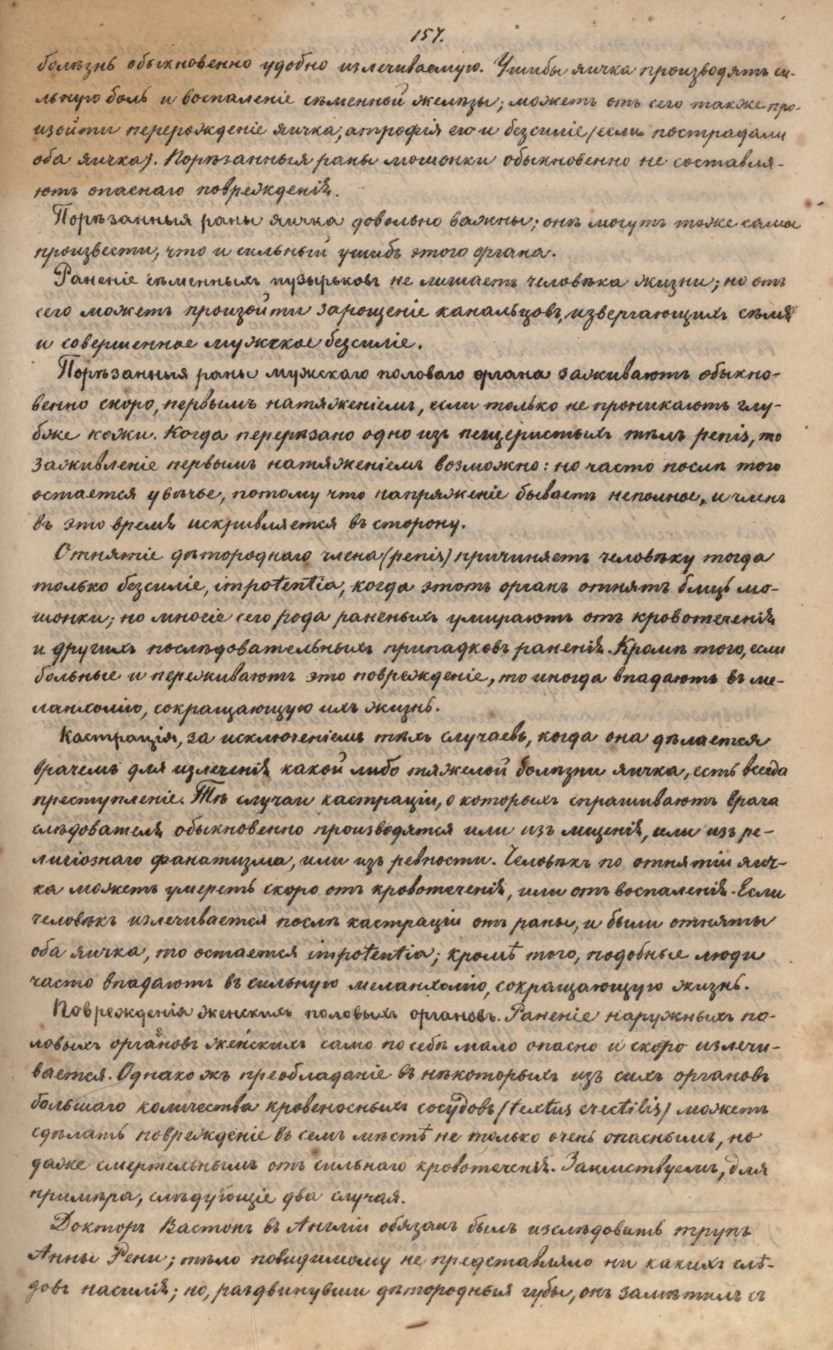 157.
болѣзнь обыкновенно удобно излечиваемую. Ушибы яичка производятъ си-
льную боль и воспаленіе сѣменной железы; можетъ отъ сего также про-
изойти перерожденіе яичка, атрофія его и безсиліе (если пострадали
оба яичка). Порѣзанныя раны мошонки обыкновенно не составля-
ютъ опаснаго поврежденія.
Порѣзанныя раны яичка довольно важны; онѣ могутъ тоже самое
произвести, что и сильный ушибъ этого органа.
Раненіе сѣменныхъ пузырьковъ не лишаетъ человѣка жизни; но отъ
сего можетъ произойти зарощеніе канальцовъ, извергающихъ сѣмя
и совершенное мужское безсиліе.
Порѣзанныя раны мужскаго половаго органа заживаютъ обыкно-
венно скоро, первымъ натяженіемъ, если только не проникаютъ глу-
бже кожи. Когда перерѣзано одно изъ пещеристыхъ тѣлъ penis, то
заживленіе первымъ натяженіемъ возможно: но часто послѣ того
остается увѣчье, потому что напряженіе бываетъ неполное, и членъ
въ это время искривляется въ сторону.
Отнятіе дѣтороднаго члена (penis) причиняетъ человѣку тогда
только безсиліе, impotentia, когда этотъ органъ отнятъ близь мо-
шонки; но многіе сего рода раненыхъ умираютъ отъ кровотеченія
и другихъ послѣдовательныхъ припадковъ раненія. Кромѣ того, если
больные и переживаютъ это поврежденіе, то иногда впадаютъ въ ме-
ланхолію, сокращающую ихъ жизнь.
Кастрація, за исключеніемъ тѣхъ случаевъ, когда она дѣлается
врачемъ для излеченія какой либо тяжелой болѣзни яичка, есть всегда
преступленіе. Тѣ случаи кастраціи, о которыхъ спрашиваютъ врача
слѣдователя обыкновенно производятся или изъ мщенія, или изъ ре-
лигіознаго фанатизма, или изъ ревности. Человѣкъ по отнятіи яич-
ка можетъ умереть скоро отъ кровотеченія, или отъ воспаленія. Если
человѣкъ излечивается послѣ кастраціи отъ раны, и были отняты
оба яичка, то остается impotentia; кромѣ того, подобные люди
часто впадаютъ въ сильную меланхолію, сокращающую жизнь.
Поврежденія женскихъ половыхъ органовъ. Раненіе наружныхъ по-
ловыхъ органовъ женскихъ само по себѣ мало опасно и скоро излечи-
вается. Однакожъ преобладаніе въ нѣкоторыхъ изъ сихъ органовъ
большаго количества кровеносныхъ сосудовъ (textus erectilis) можетъ
сдѣлать поврежденіе въ семъ мѣстѣ не только очень опаснымъ, но
даже смертельнымъ отъ сильнаго кровотеченія. Заимствуемъ, для
примѣра, слѣдующіе два случая.
Докторъ Вастонъ въ Англіи обязанъ былъ изслѣдовать трупъ
Анны Рени; тѣло повидимому не представляло ни какихъ слѣ-
довъ насилія; но, раздвинувши дѣтородныя губы, онъ замѣтилъ съ